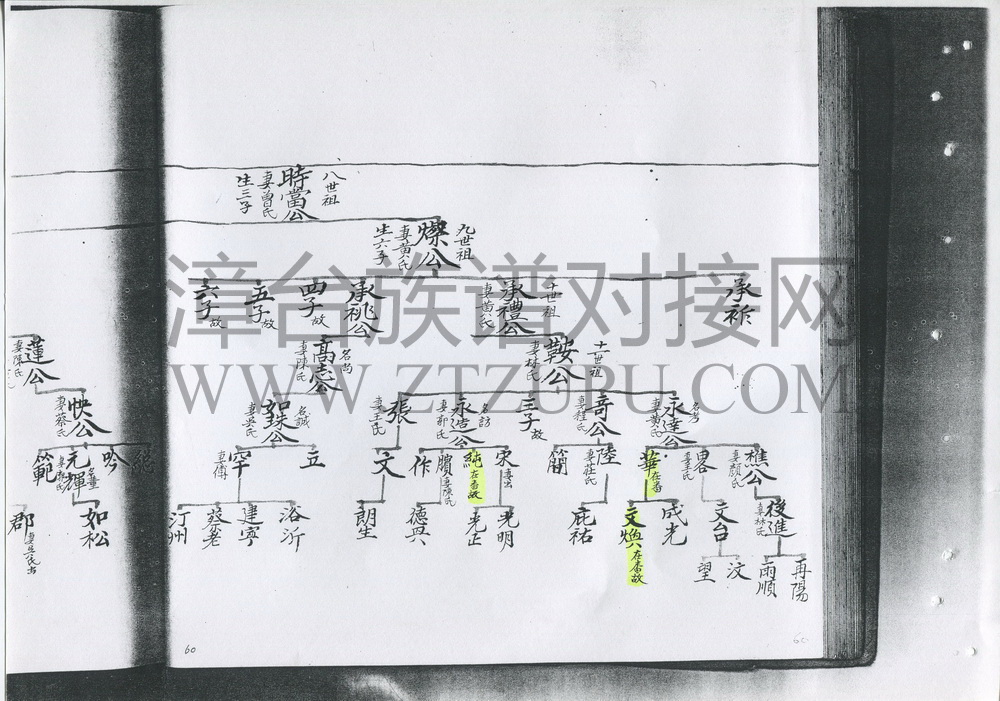 八世祖
時當公
妻曾氏
生三子
九世祖
燦公
妻黄氏
生六子
承祚
十世祖
承禮公
妻黄氏
承祧公
四子故
五子故
六子故
十一世祖
鞍公
妻林氏
名尚
高志公
妻陳氏
蓮公
妻陳氏
名考
永達公
妻黄氏
奇公
妻程氏
三子故
名訪
永造公
妻郭氏
張
妻王氏
名誠
如珠公
妻吳氏
快公
妻蔡氏
樵公
妻顏氏
畧
妻王氏
華
在番
陸
妻莊氏
簡
宋
妻出
純
在番故
妻陳氏
作
文
立
罕
妻傅
吟
元輝
範
後進
妻林氏
文台
成光
文煥
在番故
庇祐
光明
光正
德興
朗生
浴沂
建寧
蔡老
汀州
如松
郡
再陽
雨順
汶
望
60
60
漳台族谱对接网
WWW.ZTZUPU.COM